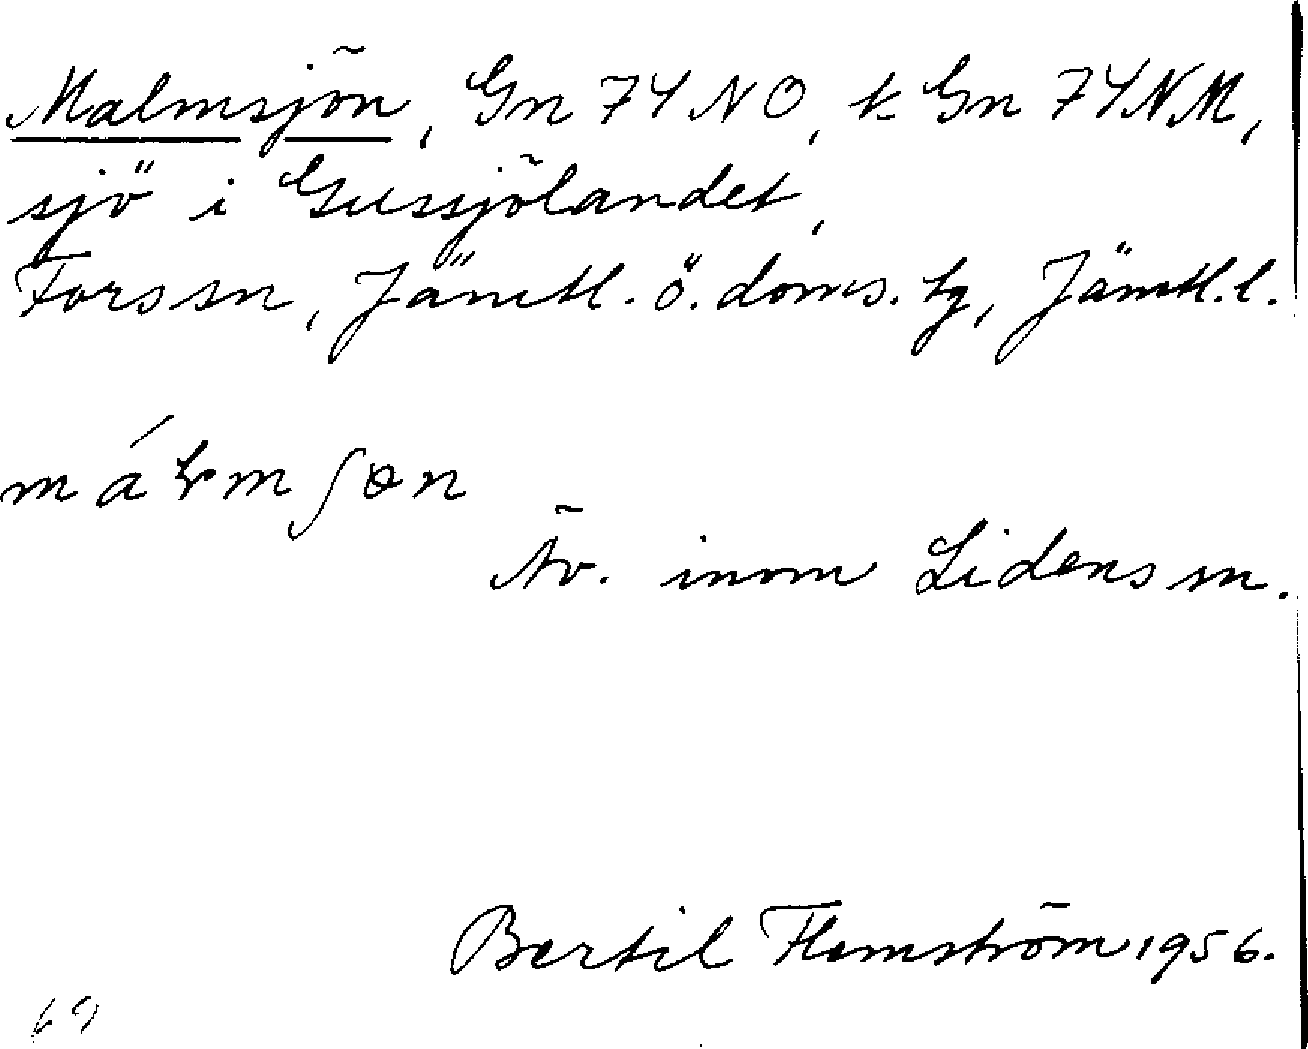 Malmsjön, Gn 74 NO, k Gn 74 NM,
sjö i Gussjölandet,
Fors sn, Jämtl. ö. doms. tg, Jämtl. l.
Äv. inom Lidens sn.
Bertil Flemström 1956.